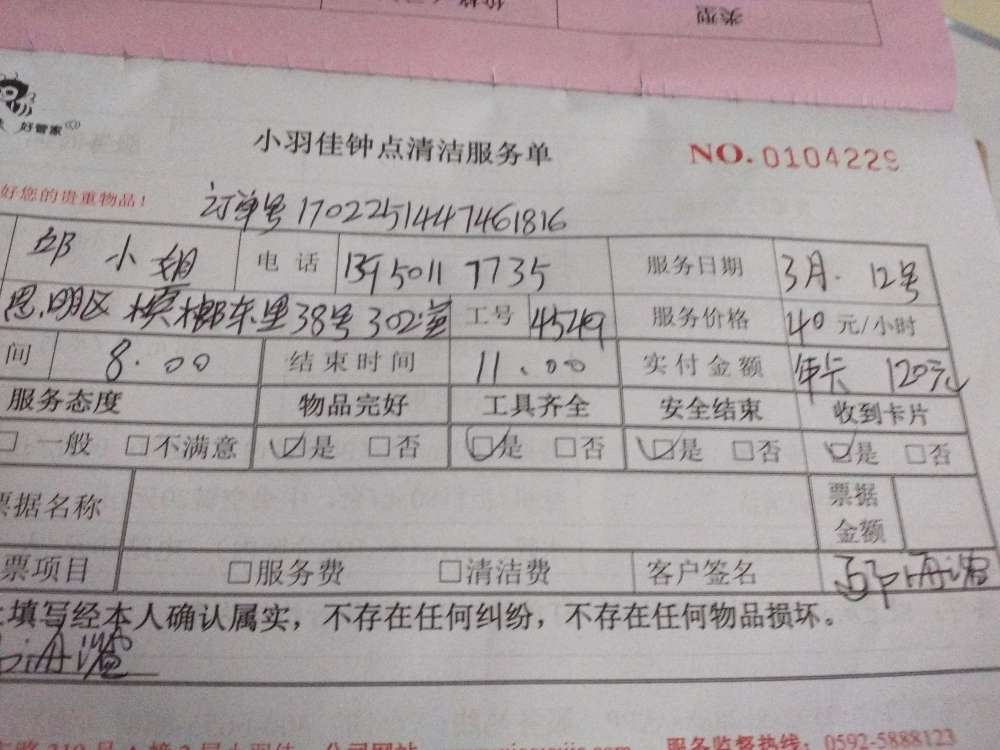 类型
好管家
小羽佳钟点清洁服务单
NO.0104229
好您的贵重物品！
订单号1702251447461816
邱小姐 电话 13950117735 服务日期 3月.12号
思明区槟榔东里38号302室 工号 4549 服务价格 40元/小时
间 8.00 结束时间 11.00 实付金额 年卡 120元
服务态度 物品完好 工具齐全 安全结束 收到卡片
□一般 □不满意 ☑是 □否 ☑是 □否 ☑是 □否 ☑是 □否
票据名称 票据金额
票项目 □服务费 □清洁费 客户签名
填写经本人确认属实，不存在任何纠纷，不存在任何物品损坏。
服务监督热线：0592-5888123